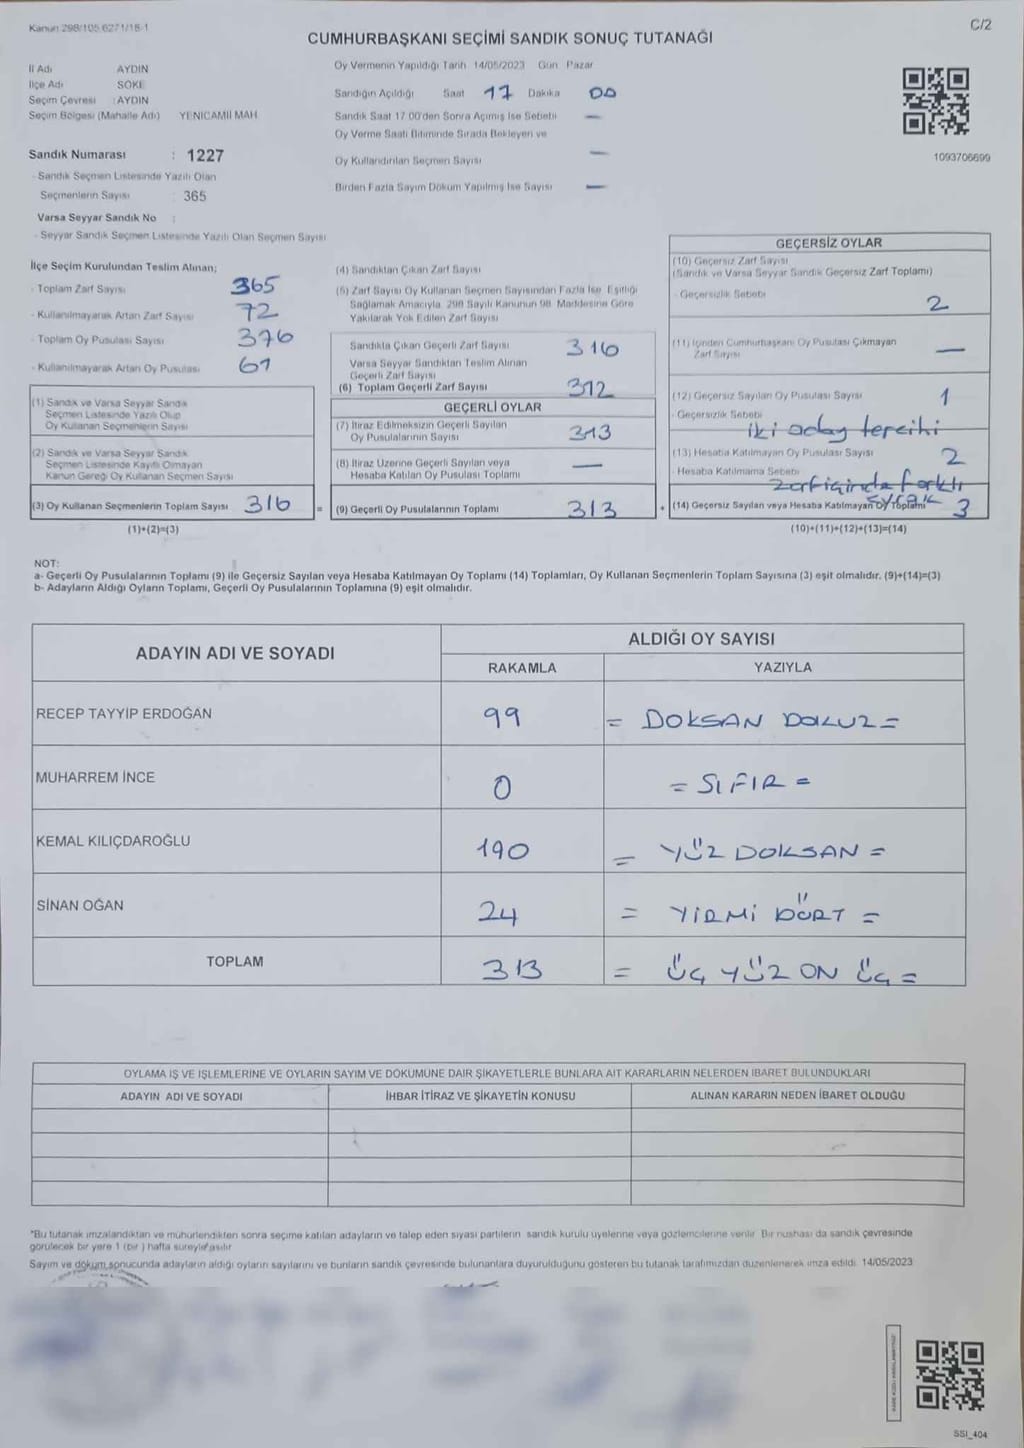 Kanun 298/105,6271/18-1
C/2
CUMHURBAŞKANI SEÇİMİ SANDIK SONUÇ TUTANAĞI
İl Adı AYDIN
İlçe Adı SÖKE
Seçim Çevresi : AYDIN
Seçim Bölgesi (Mahalle Adı) YENİCAMİİ MAH
Sandık Numarası : 1227
- Sandık Seçmen Listesinde Yazılı Olan
Seçmenlerin Sayısı : 365
Varsa Seyyar Sandık No :
- Seyyar Sandık Seçmen Listesinde Yazılı Olan Seçmen Sayısı
Oy Vermenin Yapıldığı Tarih 14/05/2023 Gün Pazar
Sandığın Açıldığı Saat 17 Dakika 00
Sandık Saat 17.00'den Sonra Açımış İse Sebebi —
Oy Verme Saati Bitiminde Sırada Bekleyen ve
Oy Kullandırılan Seçmen Sayısı —
Birden Fazla Sayım Döküm Yapılmış İse Sayısı —
1093706699
İlçe Seçim Kurulundan Teslim Alınan;
- Toplam Zarf Sayısı 365
- Kullanılmayarak Artan Zarf Sayısı 72
- Toplam Oy Pusulası Sayısı 376
- Kullanılmayarak Artan Oy Pusulası 61
(1) Sandık ve Varsa Seyyar Sandık
Seçmen Listesinde Yazılı Olup
Oy Kullanan Seçmenlerin Sayısı
(2) Sandık ve Varsa Seyyar Sandık
Seçmen Listesinde Kayıtlı Olmayan
Kanun Gereği Oy Kullanan Seçmen Sayısı
(3) Oy Kullanan Seçmenlerin Toplam Sayısı 316
(1)+(2)=(3)
(4) Sandıktan Çıkan Zarf Sayısı
(5) Zarf Sayısı Oy Kullanan Seçmen Sayısından Fazla İse, Eşitliği
Sağlamak Amacıyla, 298 Sayılı Kanunun 98. Maddesine Göre
Yakılarak Yok Edilen Zarf Sayısı
Sandıkta Çıkan Geçerli Zarf Sayısı 316
Varsa Seyyar Sandıktan Teslim Alınan
Geçerli Zarf Sayısı
(6) Toplam Geçerli Zarf Sayısı 312
GEÇERLİ OYLAR
(7) İtiraz Edilmeksizin Geçerli Sayılan
Oy Pusulalarının Sayısı 313
(8) İtiraz Üzerine Geçerli Sayılan veya
Hesaba Katılan Oy Pusulası Toplamı —
= (9) Geçerli Oy Pusulalarının Toplamı 313
GEÇERSİZ OYLAR
(10) Geçersiz Zarf Sayısı
(Sandık ve Varsa Seyyar Sandık Geçersiz Zarf Toplamı)
- Geçersizlik Sebebi 2
(11) İçinden Cumhurbaşkanı Oy Pusulası Çıkmayan
Zarf Sayısı —
(12) Geçersiz Sayılan Oy Pusulası Sayısı 1
- Geçersizlik Sebebi
iki aday tercihi
(13) Hesaba Katılmayan Oy Pusulası Sayısı 2
- Hesaba Katılmama Sebebi
zarf içinde farklı
+ (14) Geçersiz Sayılan veya Hesaba Katılmayan Oy Toplamı 3
(10)+(11)+(12)+(13)=(14)
NOT:
a- Geçerli Oy Pusulalarının Toplamı (9) ile Geçersiz Sayılan veya Hesaba Katılmayan Oy Toplamı (14) Toplamları, Oy Kullanan Seçmenlerin Toplam Sayısına (3) eşit olmalıdır. (9)+(14)=(3)
b- Adayların Aldığı Oyların Toplamı, Geçerli Oy Pusulalarının Toplamına (9) eşit olmalıdır.
ADAYIN ADI VE SOYADI
ALDIĞI OY SAYISI
RAKAMLA YAZIYLA
RECEP TAYYİP ERDOĞAN 99 = DOKSAN DOKUZ =
MUHARREM İNCE 0 = SIFIR =
KEMAL KILIÇDAROĞLU 190 = YÜZ DOKSAN =
SİNAN OĞAN 24 = YİRMİ DÖRT =
TOPLAM 313 = ÜÇ YÜZ ON ÜÇ =
OYLAMA İŞ VE İŞLEMLERİNE VE OYLARIN SAYIM VE DÖKÜMÜNE DAİR ŞİKAYETLERLE BUNLARA AİT KARARLARIN NELERDEN İBARET BULUNDUKLARI
ADAYIN ADI VE SOYADI İHBAR İTİRAZ VE ŞİKAYETİN KONUSU ALINAN KARARIN NEDEN İBARET OLDUĞU
*Bu tutanak imzalandıktan ve mühürlendikten sonra seçime katılan adayların ve talep eden siyasi partilerin sandık kurulu üyelerine veya gözlemcilerine verilir. Bir nüshası da sandık çevresinde
görülecek bir yere 1 (bir) hafta süreyle asılır
Sayım ve döküm sonucunda adayların aldığı oyların sayılarını ve bunların sandık çevresinde bulunanlara duyurulduğunu gösteren bu tutanak tarafımızdan düzenlenerek imza edildi. 14/05/2023
SSI_404